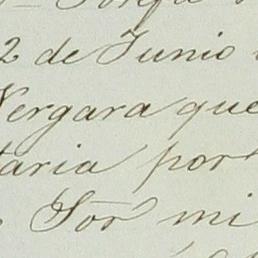 2 de Junio
Vergara que
taria por
Sor mi